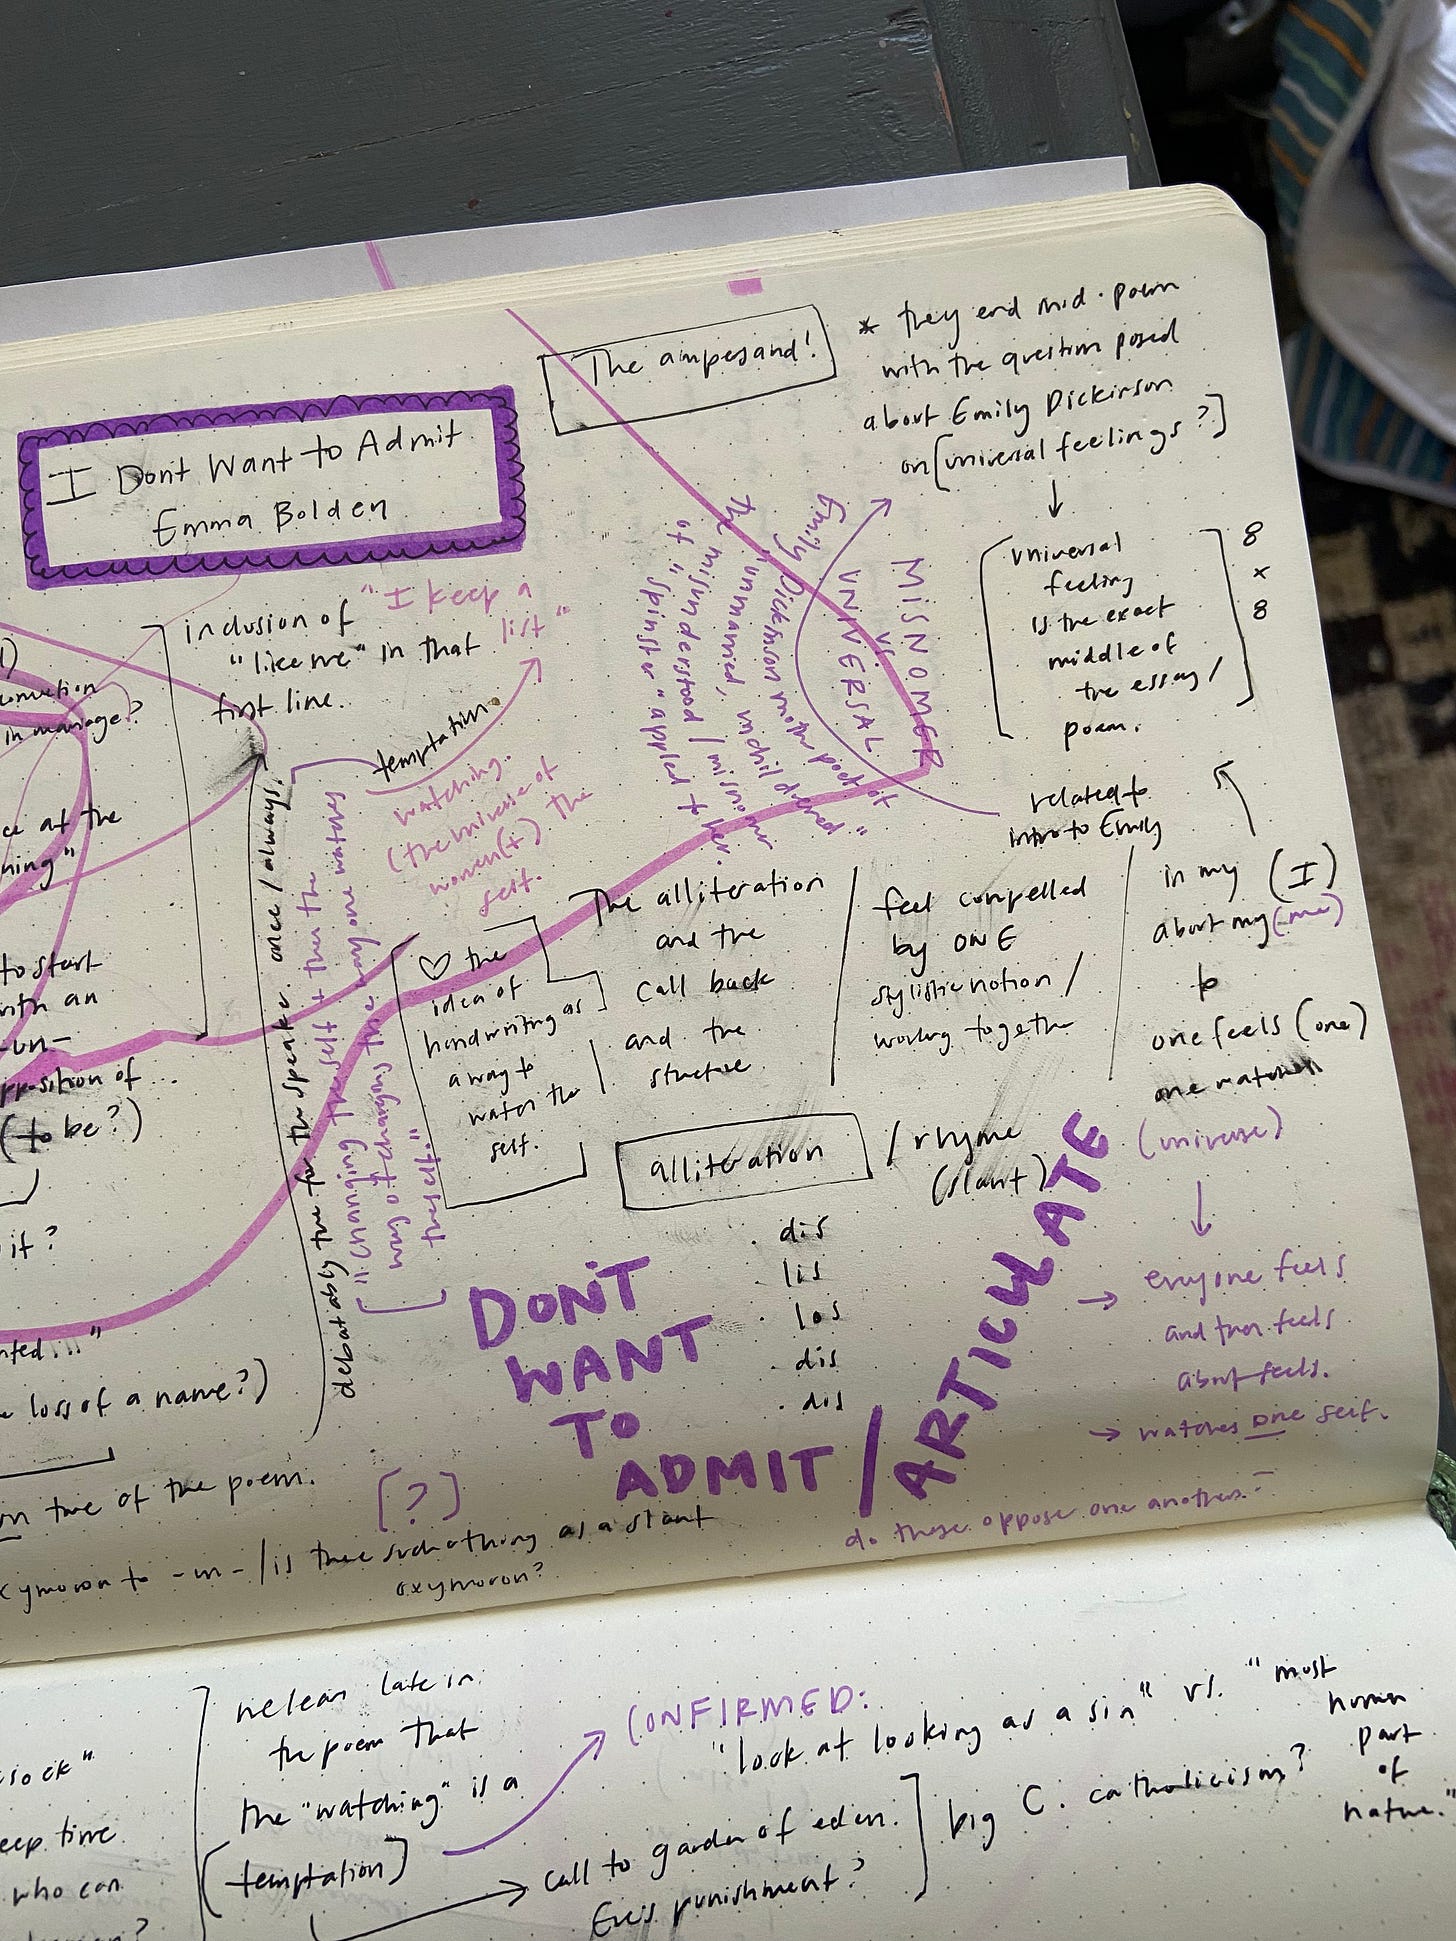 The ampesand!
* they end mid-poem
with the question posed
about Emily Dickinson
on [universal feelings?]
I Dont Want to Admit
Emma Bolden
universal
feeling
is the exact
middle of
the essay/
poem.
8
x
8
related to
intro to Emily
MISNOMER
VS.
UNIVERSAL
Emily Dickinson
"unmarried,
the misunderstood / misnomer
of "spinster" applied to her.
inclusion of "I keep a
"like me" in that list"
first line.
temptation.
watching.
(the universe of
women(+) the
self.
in marriage?
ce at the
ning"
to start
with an
-un-
opposition of ...
(to be?)
it?
nted..."
loss of a name?)
debatably true for the speaker. once / always.
"changing the self + then the
way of changing the way one watches
the self."
♡ the
idea of
handwriting as
a way to
watch the
self.
The alliteration
and the
call back
and the
structure
feel compelled
by ONE
stylistic notion /
working together
in my (I)
about my (me)
to
one feels (one)
one watches
(universe)
everyone feels
and then feels
about feels.
→ watches one self.
do these oppose one another?
alliteration / rhyme
(slant)
. dis
. lis
. los
. dis
. dis
DON'T
WANT
TO
ADMIT / ARTICULATE
[?]
true of the poem.
oxymoron to -un- / is there such a thing as a slant
oxymoron?
we learn late in
the poem that
the "watching" is a
(temptation)
CONFIRMED:
"look at looking as a sin" vs. "most
human
part
of
nature."
call to garden of eden.
Eve's punishment?
big C. catholicism?
sock"
keep time
who can